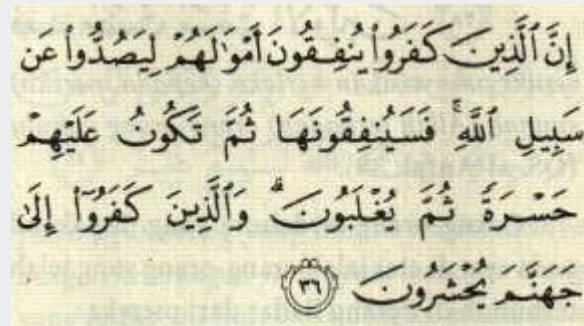 إِنَّ ٱلَّذِينَ كَفَرُوا۟ يُنفِقُونَ أَمْوَٰلَهُمْ لِيَصُدُّوا۟ عَن
سَبِيلِ ٱللَّهِ ۚ فَسَيُنفِقُونَهَا ثُمَّ تَكُونُ عَلَيْهِمْ
حَسْرَةً ثُمَّ يُغْلَبُونَ ۗ وَٱلَّذِينَ كَفَرُوٓا۟ إِلَىٰ
جَهَنَّمَ يُحْشَرُونَ ٣٦